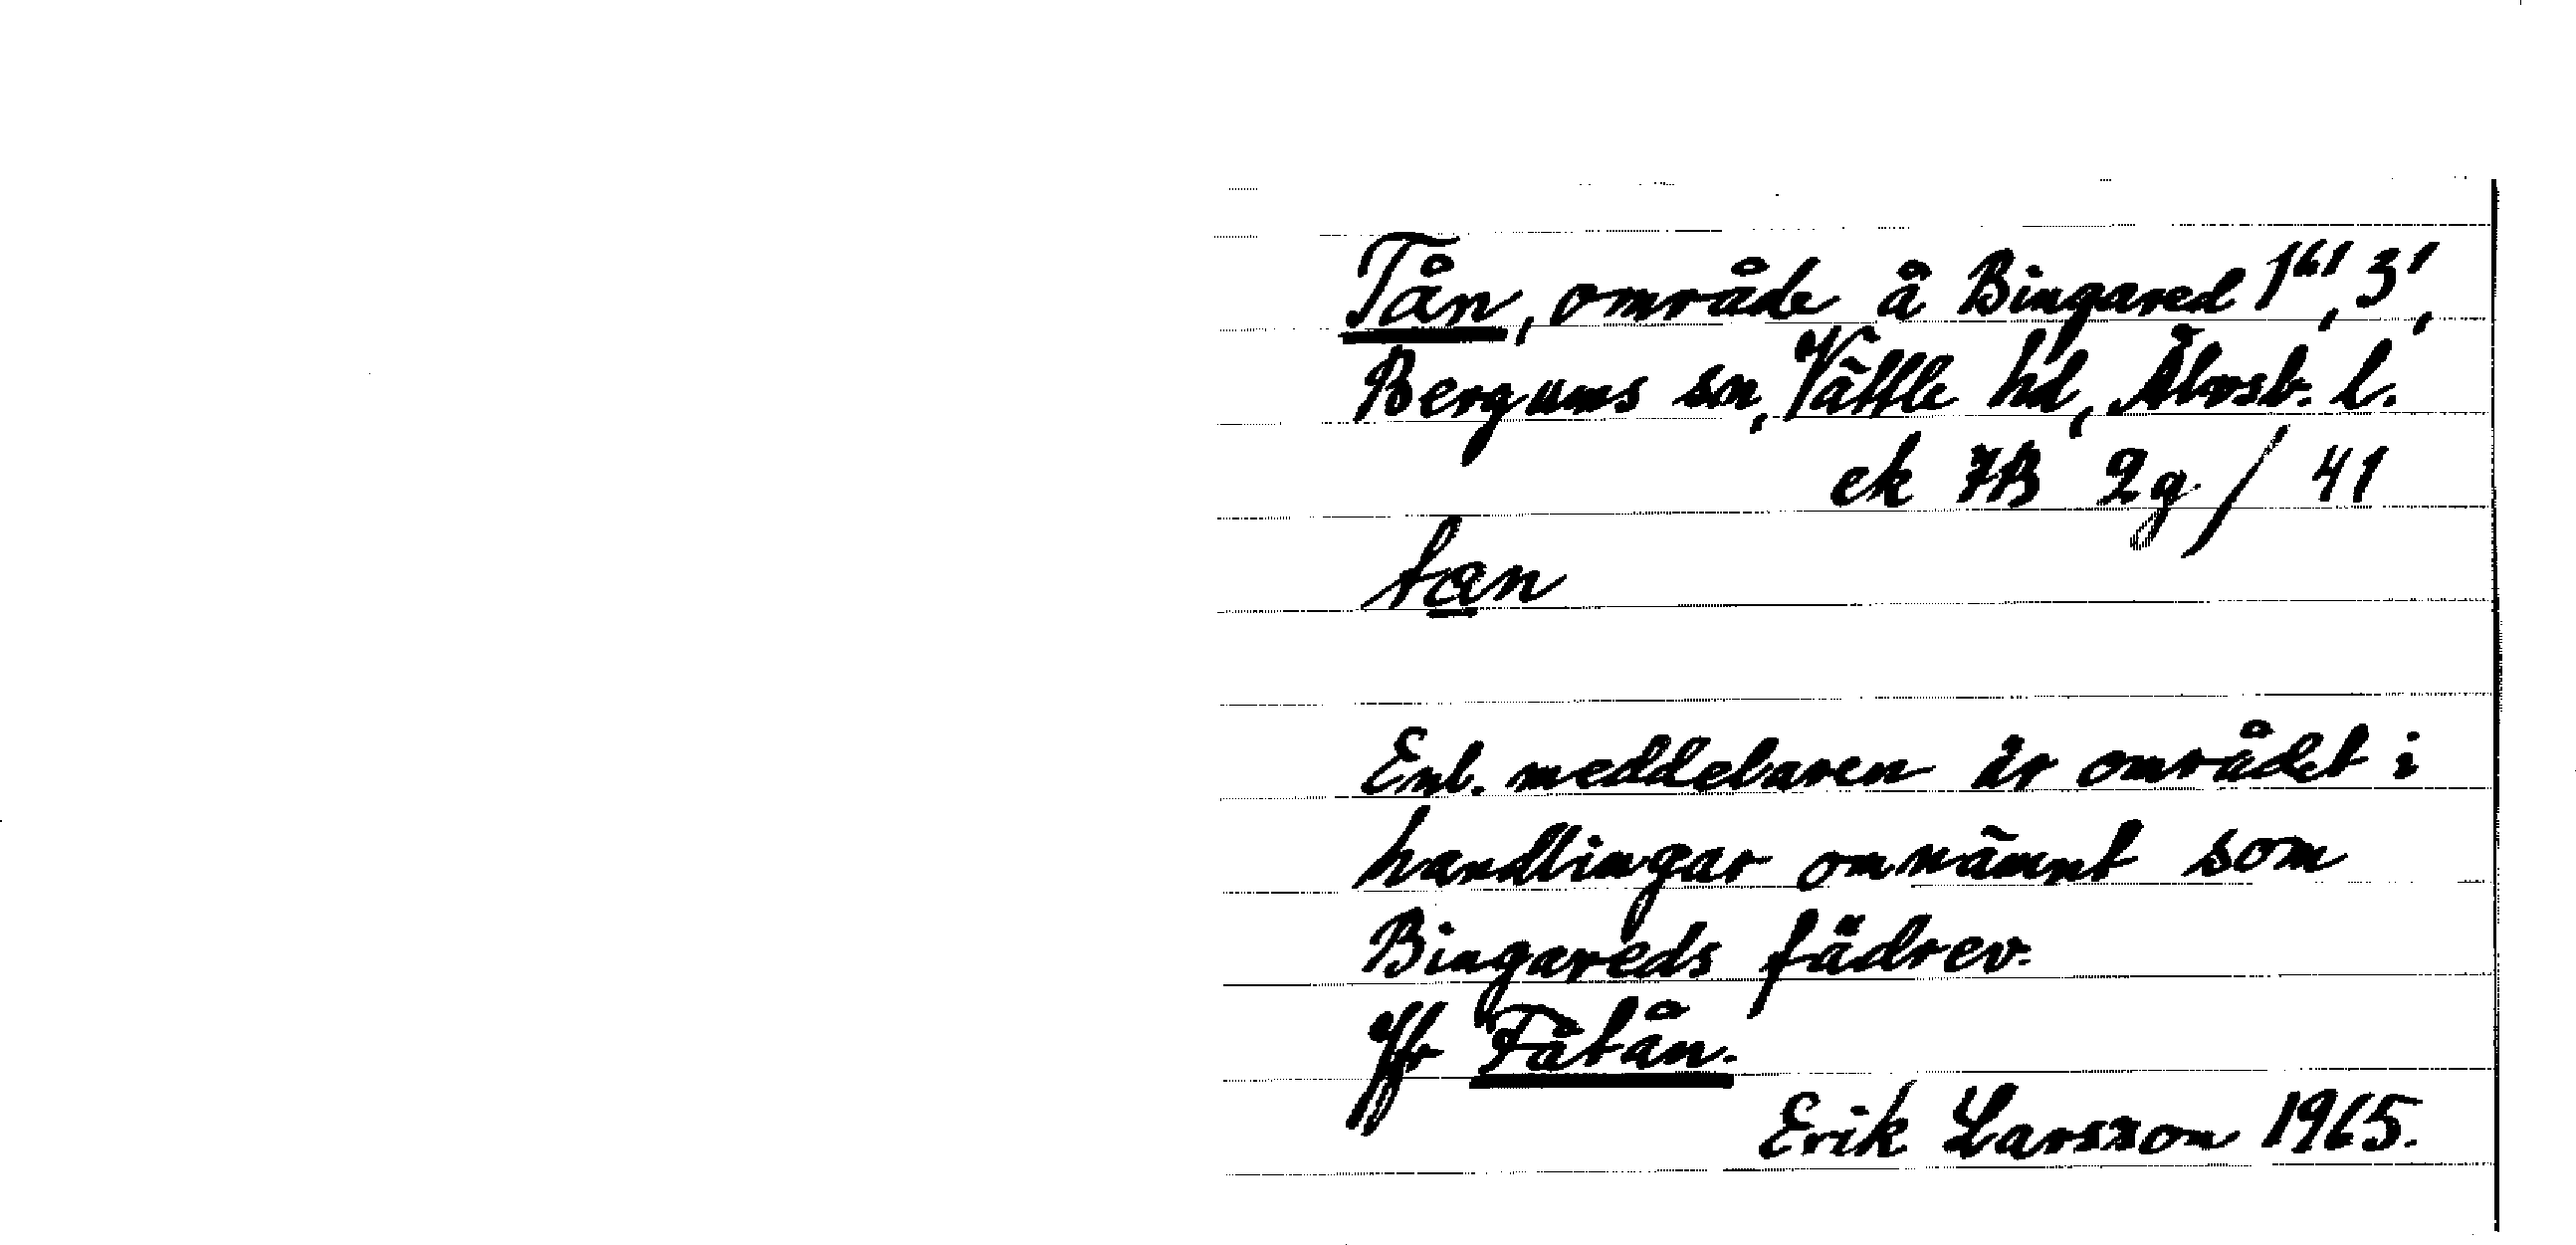 Tån, område å Bingared 1⁶¹, 3¹,
Bergums sn, Vättle hd, Älvsb. l.
ek 7B 2g / 41
Enl. meddelaren är området i
handlingar omnämnt som
Bingareds fädrev.
Jfr Fåtån.
Erik Larsson 1965.